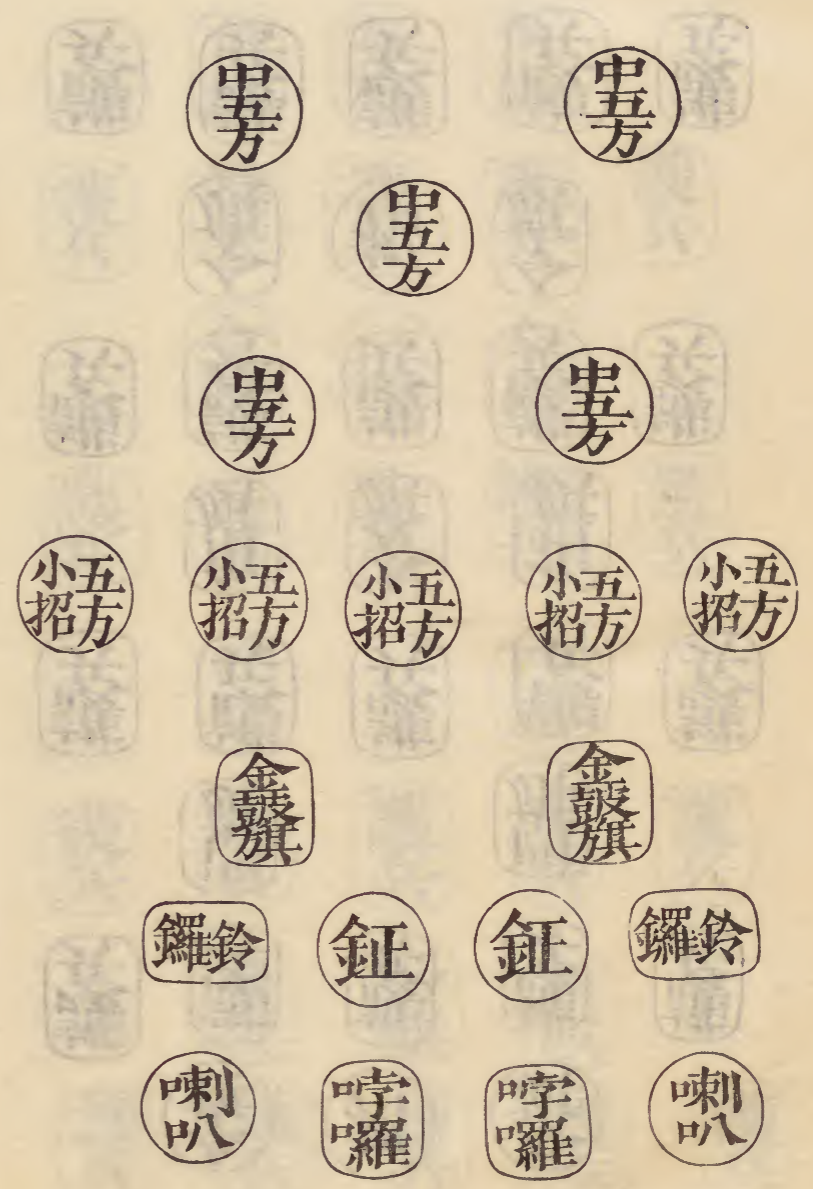 中五方
中五方
中五方
中五方
中五方
五方小招
五方小招
五方小招
五方小招
五方小招
金皷旗
金皷旗
鈴鑼
鉦
鉦
鈴鑼
喇叭
哱囉
哱囉
喇叭